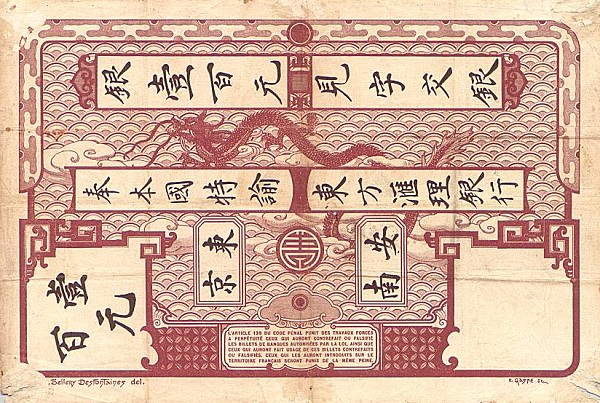 銀壹百元
見字交銀
奉本國特諭
東方滙理銀行
東京
安南
壹百元
L'ARTICLE 139 DU CODE PÉNAL PUNIT DES TRAVAUX FORCÉS
A PERPÉTUITÉ CEUX QUI AURONT CONTREFAIT OU FALSIFIÉ
LES BILLETS DE BANQUES AUTORISÉES PAR LA LOI, AINSI QUE
CEUX QUI AURONT FAIT USAGE DE CES BILLETS CONTREFAITS
OU FALSIFIÉS. CEUX QUI LES AURONT INTRODUITS SUR LE
TERRITOIRE FRANÇAIS SERONT PUNIS DE LA MÊME PEINE.
Bellery Desfontaines del.